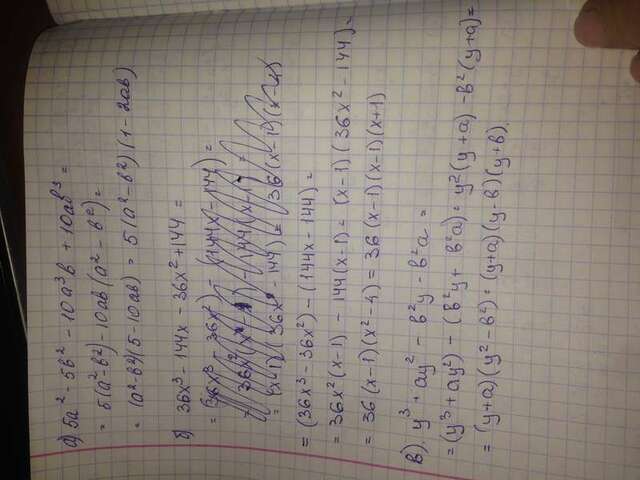 а) 5a² - 5b² - 10a³b + 10ab³ =
= 5(a²-b²) - 10ab(a² - b²) =
= (a²-b²)(5-10ab) = 5(a²-b²)(1-2ab)
б) 36x³ - 144x - 36x² + 144 =
= (36x³ - 36x²) - (144x - 144) =
= (x-1)(36x² - 144) = 36(x-1)(x-4)
= (36x³ - 36x²) - (144x - 144) =
= 36x²(x-1) - 144(x-1) = (x-1)(36x² - 144) =
= 36(x-1)(x²-4) = 36(x-1)(x-1)(x+1)
в) y³ + ay² - b²y - b²a =
= (y³ + ay²) - (b²y + b²a) = y²(y+a) - b²(y+a) =
= (y+a)(y² - b²) = (y+a)(y-b)(y+b).